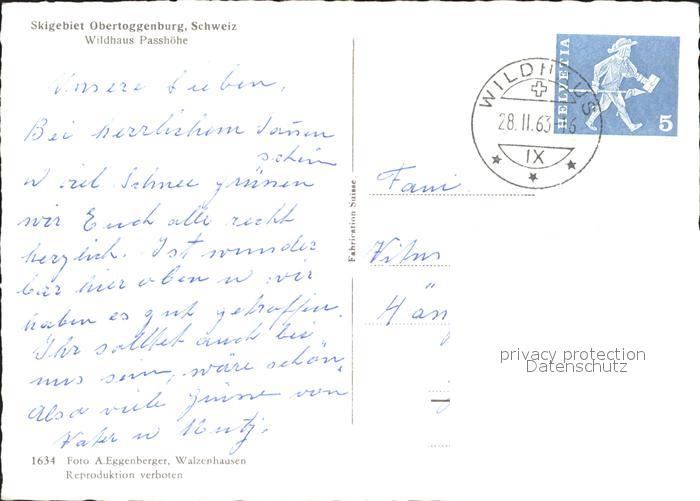 Skigebiet Obertoggenburg, Schweiz
Wildhaus Passhöhe
Unsere Lieben,
Bei herrlichem Sonnen
schein
u viel Schnee grüssen
wir Euch alle recht
herzlich. Ist wunder
bar hier oben u wir
haben es gut getroffen.
Ihr solltet auch bei
uns sein, wäre schön.
Also viele Grüsse von
Vater u Mutj.
1634 Foto A.Eggenberger, Walzenhausen
Reproduktion verboten
Fabrication Suisse
WILDHAUS
28.II.63-16
IX
HELVETIA
5
Fam
Vitus
Hän
privacy protection
Datenschutz